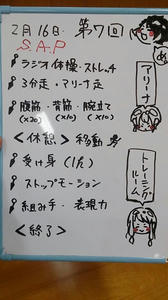 2月16日 第7回
S.A.P
ラジオ体操・ストレッチ
3分走・アリーナ走
腹筋・背筋・腕立て
(×20) (×10) (×10)
<休憩> 移動
受け身(1/2)
ストップモーション
組み手・表現力
<終了>
アリーナ
トレーニングルーム
め